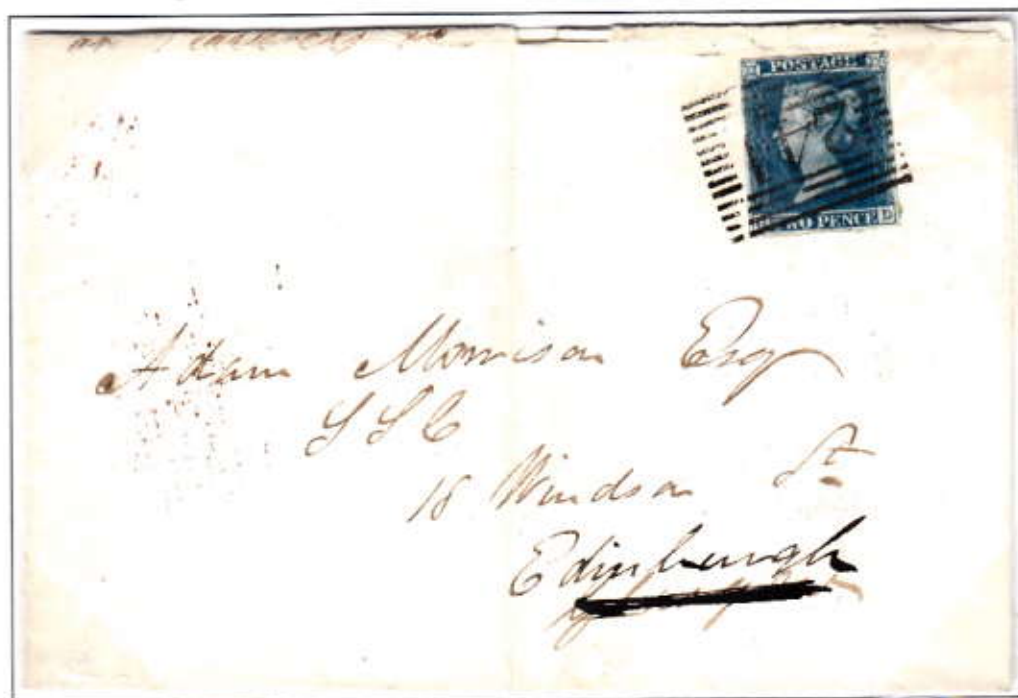 POSTAGE
TWO PENCE D
Adam Morrison Esq
SSC
18 Windsor St
Edinburgh